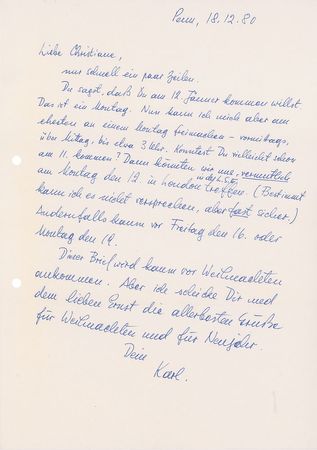 Penn, 18.12.80
Liebe Christiane,
nur schnell ein paar Zeilen.
Du sagst, daß Du am 12. Jänner kommen willst.
Das ist ein Montag. Nun kann ich mich aber am
ehesten an einem Montag freimachen – vormittags,
über Mittag, bis etwa 3 Uhr. Könntest Du vielleicht schon
am 11. kommen? Dann könnten wir uns vermutlich
am Montag den 12. in London treffen. (Bestimmt
kann ich es nicht versprechen, aber fast sicher.)
Andernfalls kaum vor Freitag den 16. oder
Montag den 19.
Dieser Brief wird kaum vor Weihnachten
ankommen. Aber ich schicke Dir und
dem lieben Ernst die allerbesten Grüße
für Weihnachten und für Neujahr.
Dein
Karl.